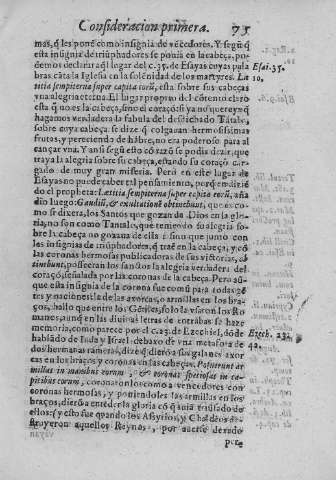 Consideracion primera. 75
mas, q̃ les pone como insignia de vẽcedores. Y segũ q̃
esta insignia de triũphadores se ponia en la cabeça, po-
demos declarar aql lugar del c. 35. de Esayas cuyas pala Esai. 35.
bras cãta la Iglesia en la solẽnidad de los martyres. Læ 10.
titia sempiterna super capita eorũ, esta sobre sus cabeças
vna alegria eterna. El lugar proprio del cõtento claro
esta que no es la cabeça, sino el coraçõ si ya no querey q̃
hagamos verdadera la fabula del desdichado Tãtalo,
sobre cuya cabeça se dize q̃ colgauan hermosissimas
frutas, y pereciendo de hãbre, no era poderoso para al
cançar vna. Y ansi segũ esto cõ razõ se podia dezir, que
trayala alegria sobre su cabeça, estando su coraçõ car-
gado de muy gran miseria. Però en este lugar de
Esayas no puede caber tal pensamiento, porq̃ endiziẽ
do el propheta: Lætitia sempiterna super capita eorũ, aña
dio luego: Gaudiũ, & exultationẽ obtinebunt, que es co-
mo si dixera, los Santos que gozan de Dios en la glo-
ria, no son como Tantalo, que teniendo su alegria so-
bre la cabeça no gozaua de ella: sino que junto con
las insignias de triũphadores, q̃ traẽ en la cabeça, y cõ
las coronas hermosas publicadoras de sus victorias, ob
tinebunt, posseeran los sanctos la alegria verdadera del
coraçõ, señalada por las corona de la cabeça. Pero aũ-
que esta insignia de la corona fue comũ para todas gẽ
tes y naciones: la de las axorcas, o armillas en los bra-
ços, hallo que entre los Gẽtiles, solo la vsaron los Ro
manos, aunq̃ en las diuinas letras de entrãbas se haze
memoria, como parece por el c. 23. de Ezechiel, dõ de Ezech. 23.
hablãdo de Iuda y Israel debaxo de vna metafora de 42.
dos hermanas rameras, dize q̃ dierõ a sus galanes axor
cas en los braços y coronas en las cabeças. Posuerunt ar
millas in manibus eorum, & coronas speciosas in ca-
pitibus eorum, coronaron los como a vencedores con
coronas hermosas, y poniendoles las armillas en los
braços, dierõ a entẽder la gloria cõ q̃ auiã triũfado de
ellos: y esto fue quando los Assyrios, y Chaldeos de-
struyeron aquellos Reynos,